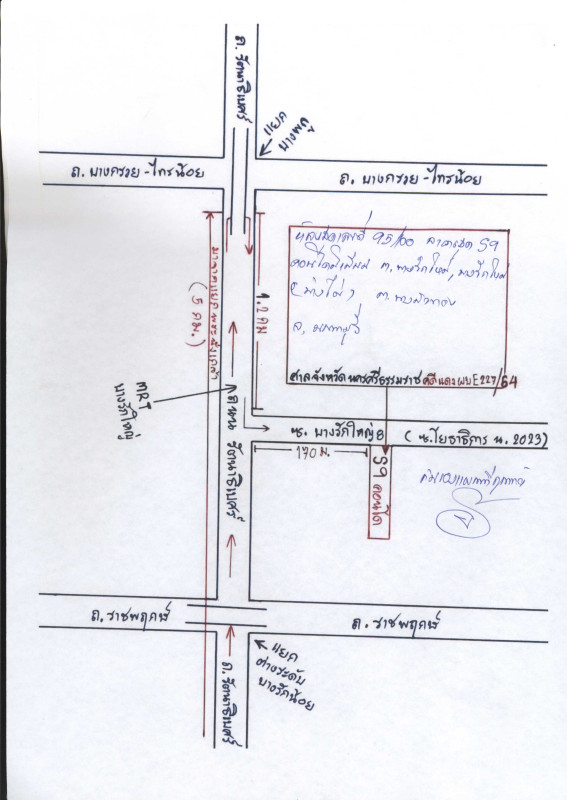 ถ. รัตนาธิเบศร์
แยก
บางพลู
ถ. บางกรวย-ไทรน้อย
ถ. บางกรวย-ไทรน้อย
ห้องชุดเลขที่ 95/100 อาคารชุด S9
คอนโดมิเนียม ต. บางรักใหญ่, บางรักใหญ่
อ. บางบัวทอง
จ. นนทบุรี
ศาลจังหวัดนครศรีธรรมราช คดีแดง ผบE 227/64
(5 กม.)
1.2 กม
MRT
บางรักใหญ่
ถนน รัตนาธิเบศร์
ซ. บางรักใหญ่ 8 (ซ. โยธาธิการ น. 2023)
170 ม.
S9 คอนโด
ถ. ราชพฤกษ์
ถ. ราชพฤกษ์
แยก
ต่างระดับ
บางรักน้อย
ถ. รัตนาธิเบศร์